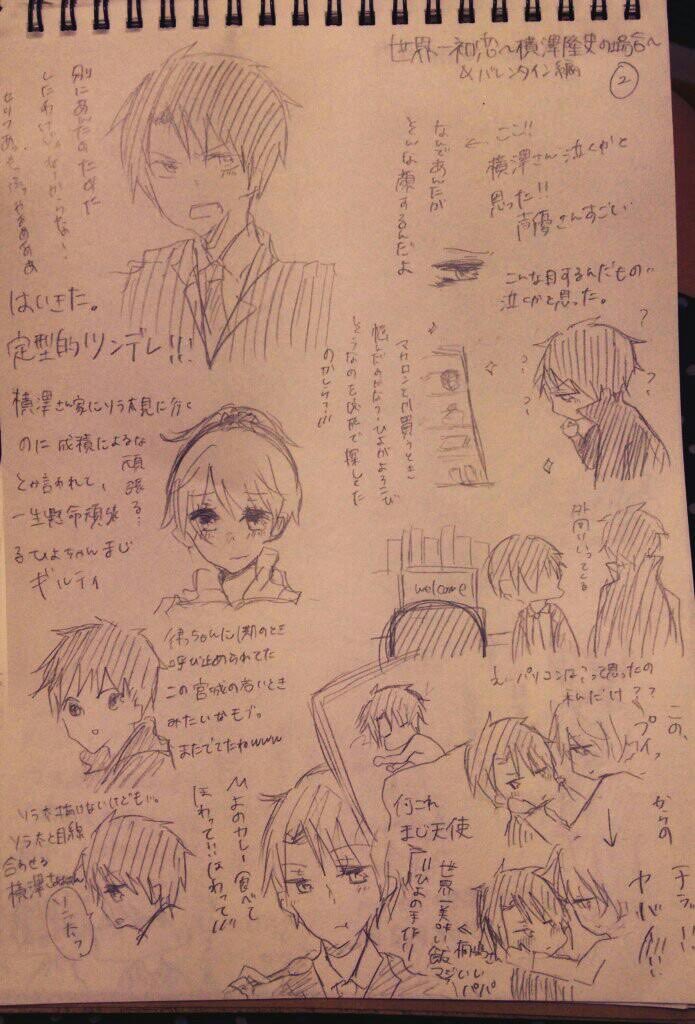 世界一初恋〜横澤隆史の場合〜
&バレンタイン編
②
ここ!!
横澤さん泣くかと
思った!!
声優さんすごい
なんであんたが
そんな顔するんだよ
こんな目するんだもの…
泣くかと思った。
別にあんたのために
したわけじゃないからな!
はいきた。
定型的ツンデレ!!!
マカロンとか買うとき
悩んだのかな?ひよがよろこび
そうなのを
探してた
のかしら?!!!
横澤さん家にソラ太見に行く
のに成績によるな
とか言われて、頑張る…
一生懸命頑張
るひよちゃんまじ
ギルティ
外回りいってる
welcome
律っちゃんに1期のとき
呼び止められてた
この宮城の若いとき
みたいなモブっ
またでてたねwww
え…パソコンは?って思ったの
私だけ??
この、
プイッ
からの
チラッ!!!
ヤバ!!!!
何これ
まじ天使
ひよのカレー食べて
ほわって!!ほわって!!!
世界一美味い飯
ひよの手作り
桐嶋さん
いい
パパ
ソラ太描けないけども…
ソラ太と目線
合わせる
横澤さん
ソラ太っ